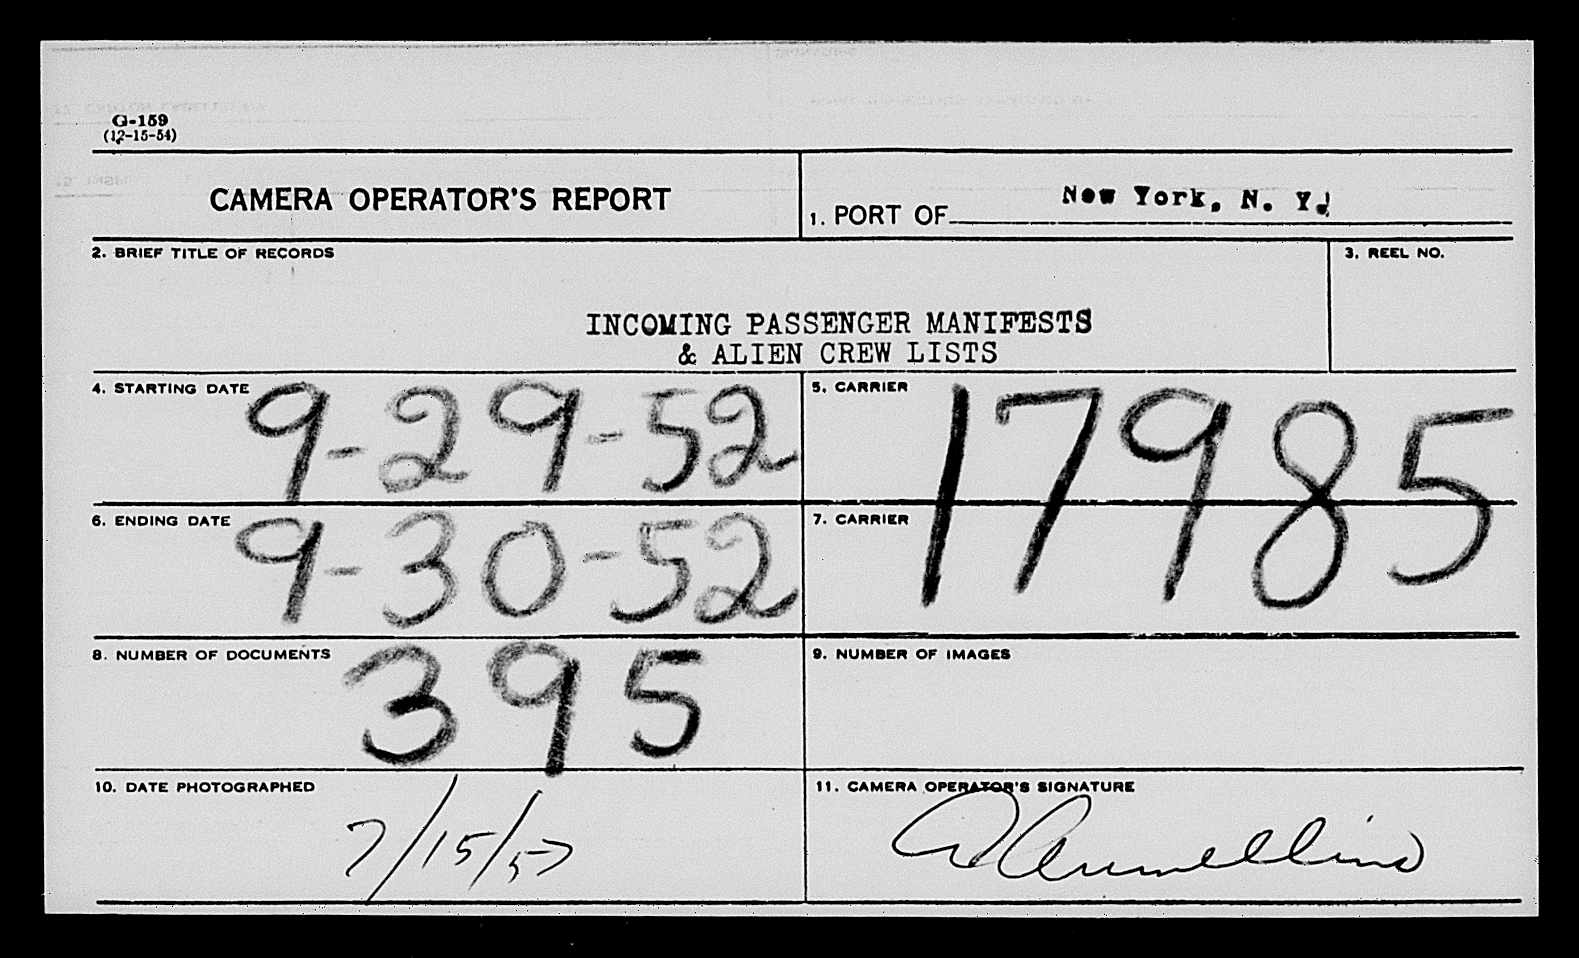 G-159
(12-15-54)
CAMERA OPERATOR'S REPORT
1. PORT OF New York, N. Y.
2. BRIEF TITLE OF RECORDS
3. REEL NO.
INCOMING PASSENGER MANIFESTS
& ALIEN CREW LISTS
4. STARTING DATE 9-29-52
5. CARRIER 17985
6. ENDING DATE 9-30-52
7. CARRIER
8. NUMBER OF DOCUMENTS 395
9. NUMBER OF IMAGES
10. DATE PHOTOGRAPHED 7/15/57
11. CAMERA OPERATOR'S SIGNATURE